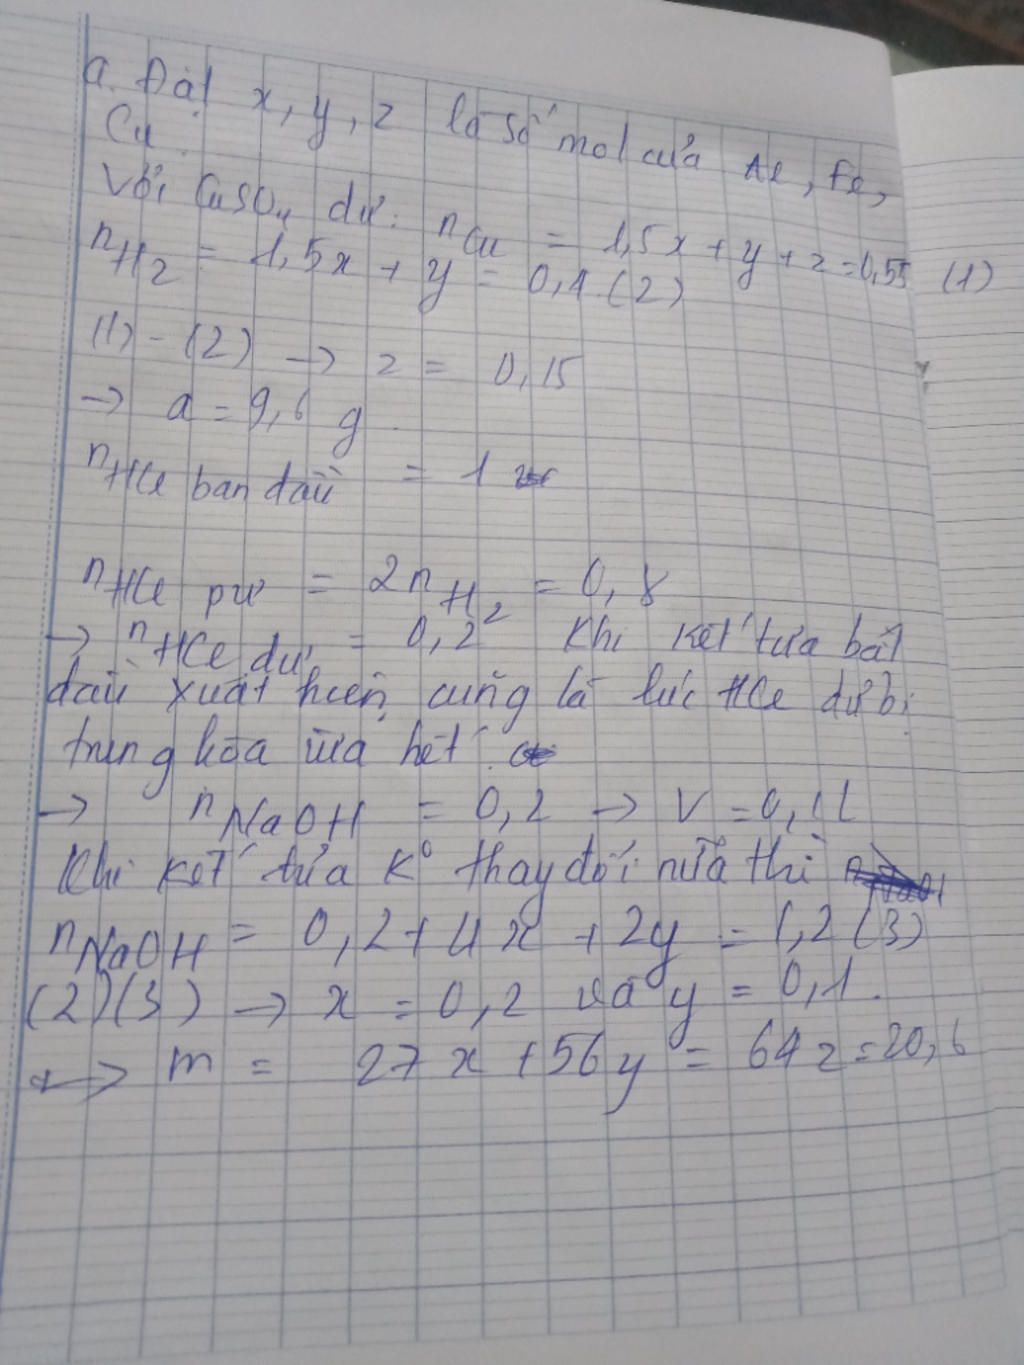 a. Đặt x, y, z là số mol của Al, Fe,
Cu
Với CuSO4 dư: nCu = 1,5x + y + z = 0,55 (1)
nH2 = 1,5x + y = 0,4 (2)
(1) - (2) → z = 0,15
→ a = 9,6 g
nHCl ban đầu = 1
nHCl pư = 2nH2 = 0,8
→ nHCl dư = 0,2 Khi kết tủa bắt
đầu xuất hiện cũng là lúc HCl dư bị
trung hòa vừa hết.
→ nNaOH = 0,2 → V = 0,1l
Khi kết tủa K° thay đổi nữa thì
nNaOH = 0,2 + 4x + 2y = 1,2 (3)
(2)(3) → x = 0,2 và y = 0,1.
→ m = 27x + 56y = 64z = 20,6